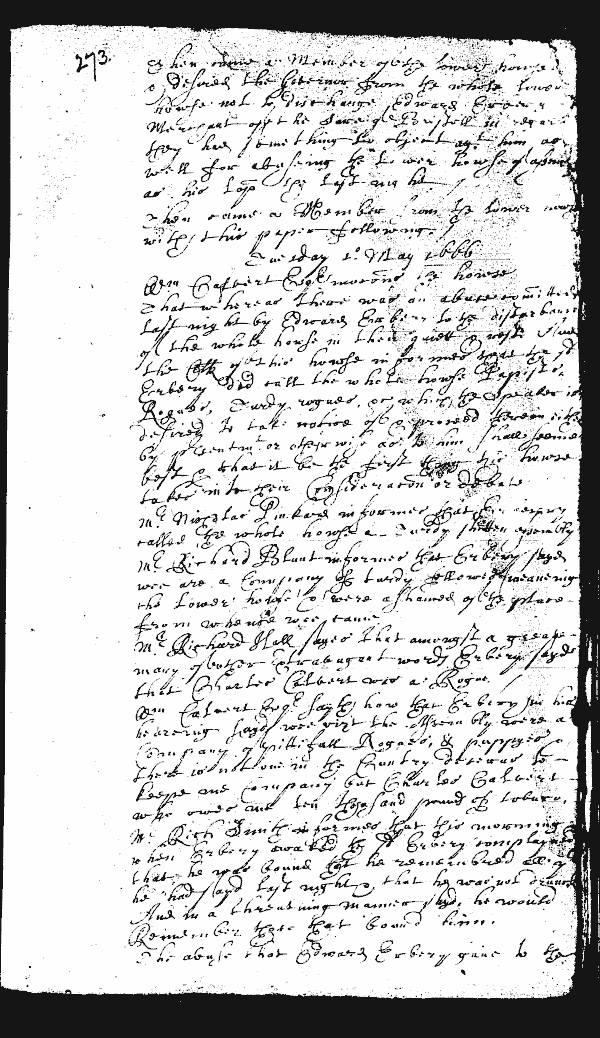 273.
Then came a Member of the lower howse
& desired the Governor from the whole lower
howse not to discharge Edward Erbery
Merchant of the Bristoll in regard
they had something to object agt him as
well for abuseing the lower howse of
as his Lopp the last night
Then came a Member from the lower howse
with this paper following.
Tuesday 1o May 1666
Wm Calvert Esqr mocons the howse
That whereas there was an abuse comitted
last night by Edward Erbery to the disturbance
of the whole howse in their quiett & rest &
the Clk of this howse informes that the sd
Erbery did call the whole howse Papists,
Rogues, Turdy rogues, &c which the speaker is
desired to take notice of & proceed therein either
by or otherwise as to him shall seeme
best & that it be the first thing this howse
takes into their Consideracon or debate
Mr Nicholas Pinkard informes that Erbery
called the whole howse a Turdy shitten assembly
Mr Richard Blunt informes that Erbery sayd
wee are a Company of turdy fellowes meaneing
the Lower howse & were ashamed of the place
from whence wee came
Mr Richard Hall sayes that amongst a greate
many of other extravagant words Erbery sayd
that Charles Calvert was a Rogue
Wm Calvert Esqr sayth how that Erbery in his
heareing sayd wee vizt the Assembly were a
Company of pittifull Rogues, & puppyes &
there is not one in the Country deserves to
keepe me Company but Charles Calvert
who owes me ten thousand pound of tobacco,
Mr Rich: Smith informes that this morning
when Erbery awaked the sd Erbery complained
that he was bound that he remembred all
he had sayd last night & that he was not drunck
And in a threatning manner sayd, he would
Remember thee that bound him.
The abuse that Edward Erbery gave to the